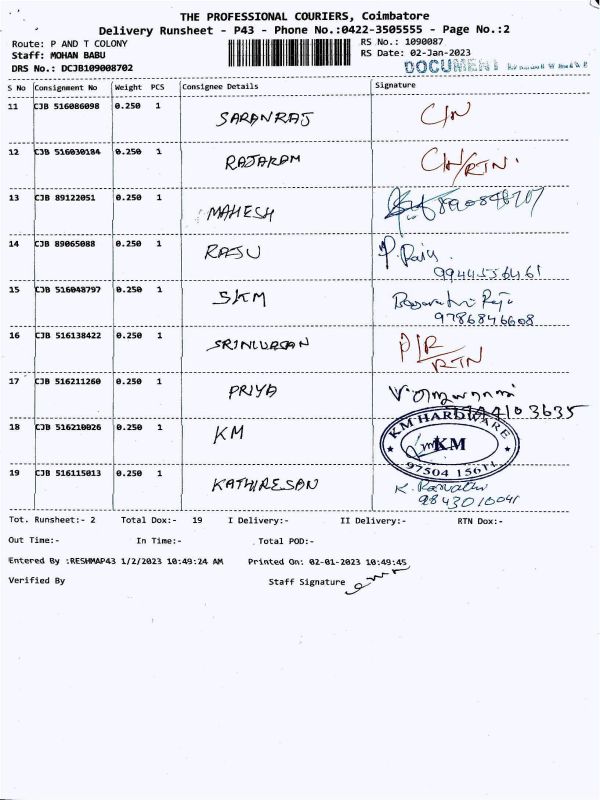 THE PROFESSIONAL COURIERS, Coimbatore
Delivery Runsheet - P43 - Phone No.:0422-3505555 - Page No.:2
Route: P AND T COLONY
RS No.: 1090087
Staff: MOHAN BABU
RS Date: 02-Jan-2023
DRS No.: DCJB109008702
DOCUMENT
S No Consignment No Weight PCS Consignee Details Signature
11 CJB 516086098 0.250 1 SARANRAJ C/N
12 CJB 516030184 0.250 1 RAJARAM C/N/RTN.
13 CJB 89122051 0.250 1 MAHESH
14 CJB 89065088 0.250 1 RAJU P. Raju.
9944556461
15 CJB 516048797 0.250 1 SKM Raju
9786846608
16 CJB 516138422 0.250 1 SRINIVASAN D/R
RTN
17 CJB 516211260 0.250 1 PRIYA
4103635
18 CJB 516210026 0.250 1 KM KM HARDWARE
KM
97504 15611
19 CJB 516115013 0.250 1 KATHIRESAN K.
9843010041
Tot. Runsheet:- 2 Total Dox:- 19 I Delivery:- II Delivery:- RTN Dox:-
Out Time:- In Time:- Total POD:-
Entered By :RESHMAP43 1/2/2023 10:49:24 AM Printed On: 02-01-2023 10:49:45
Verified By Staff Signature